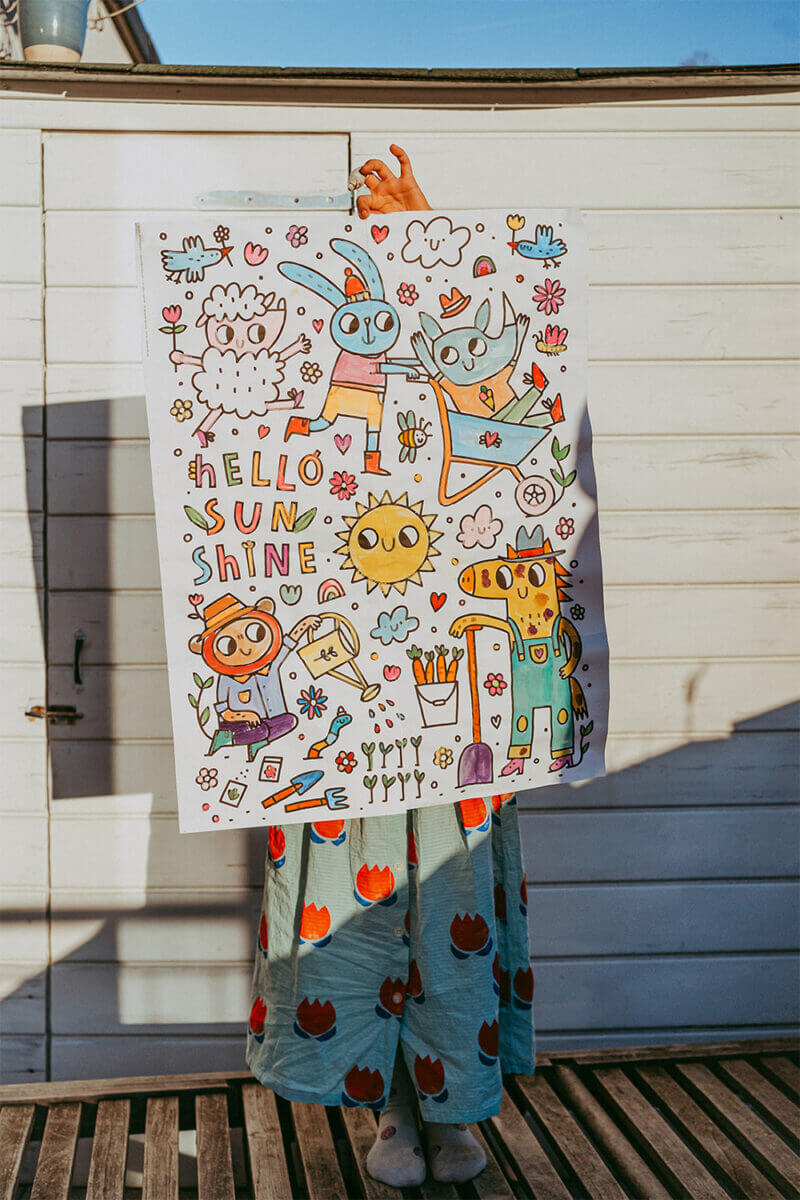 HELLO
SUN
SHINE